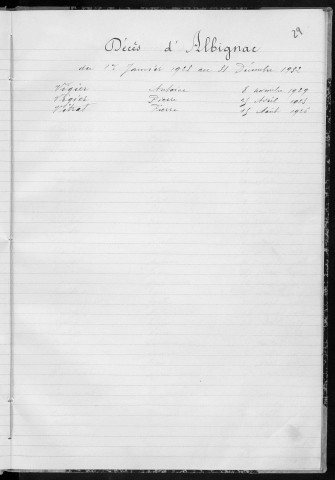 29
Décès d'Albignac
du 1er Janvier 1923 au 31 Décembre 1932
Végier Antoine 8 novembre 1929
Végier Pierre 25 Avril 1925
Pierre 25 Août 1926